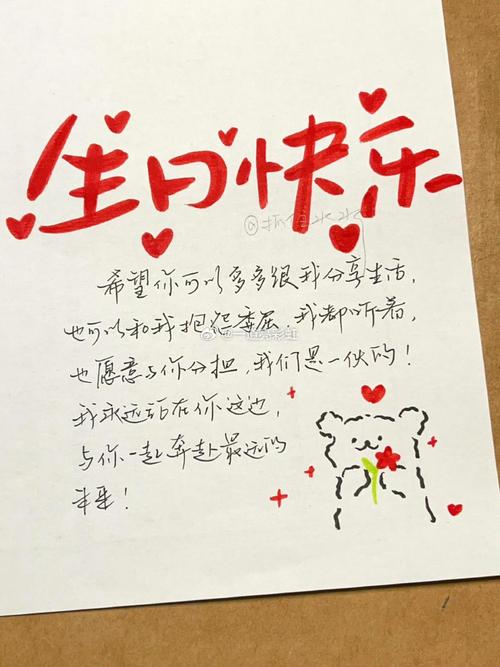 生日快乐
希望你可以多多跟我分享生活，
也可以和我抱怨委屈，我都听着，
也愿意与你分担，我们是一伙的！
我永远站在你这边，
与你一起奔赴最远的
未来！